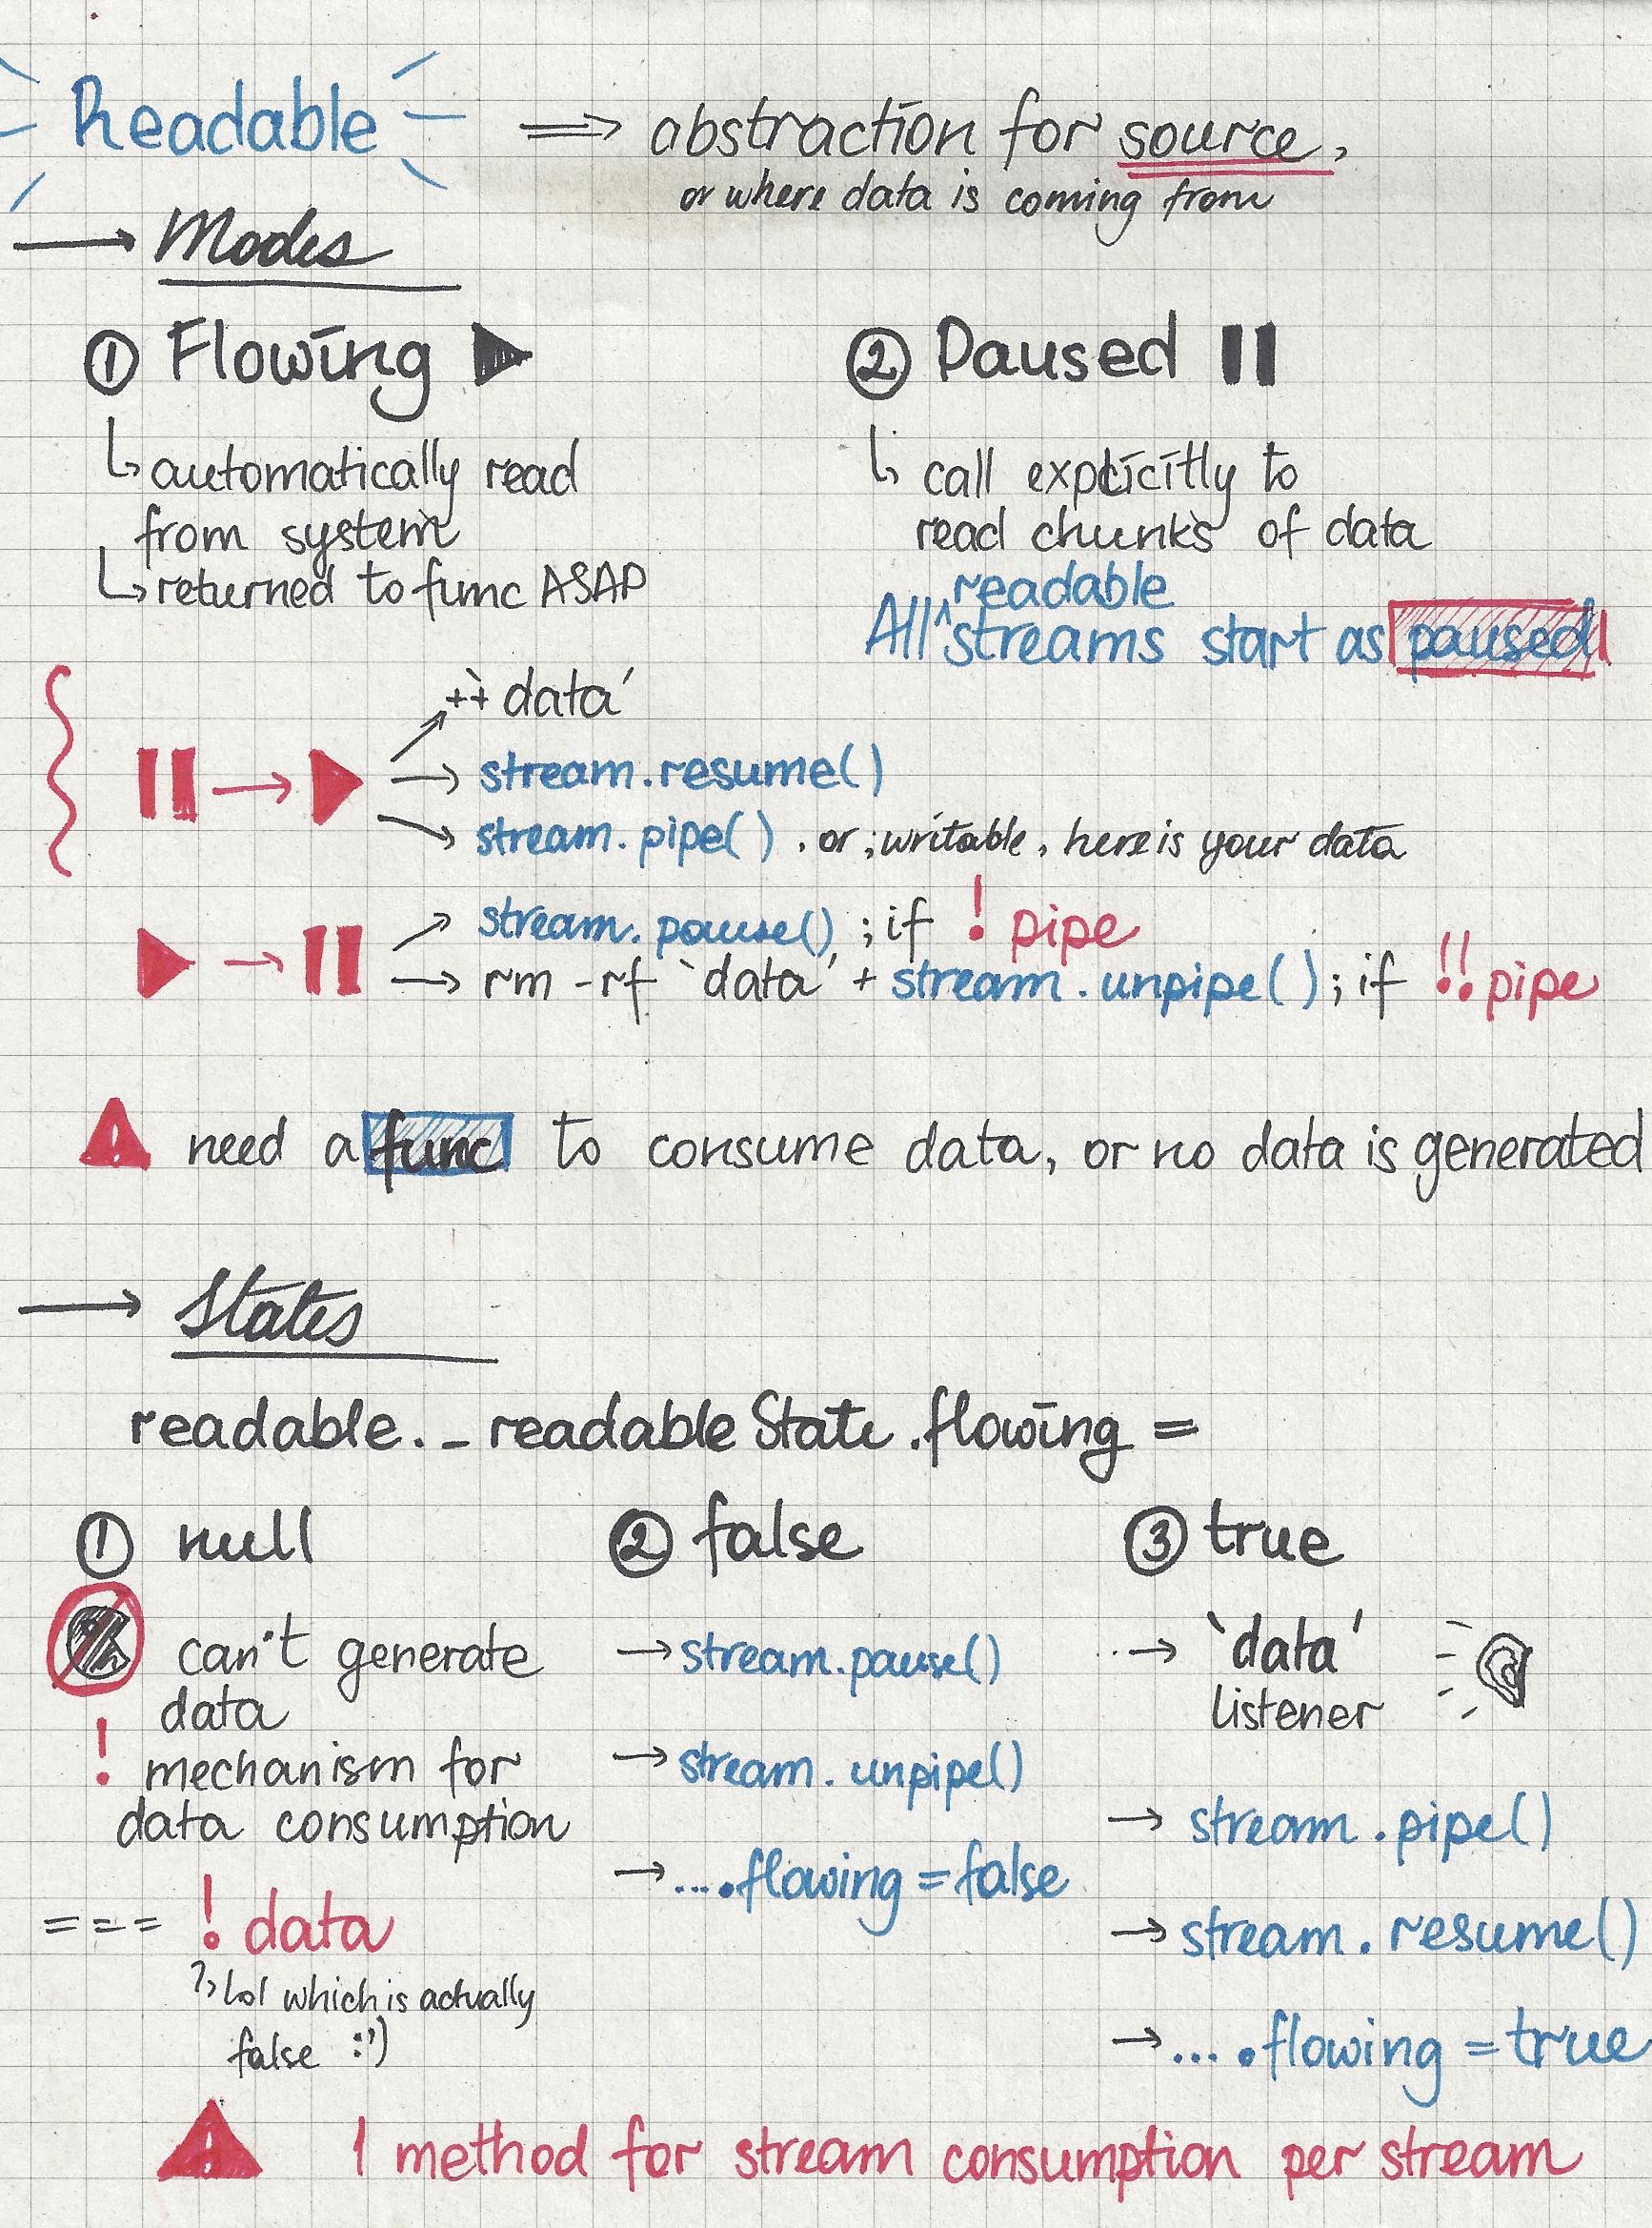 Readable ⇒ abstraction for source,
or where data is coming from
→ Modes
① Flowing ▶
↳ automatically read
from system
↳ returned to func ASAP
② Paused ⏸
↳ call explicitly to
read chunks of data
All ^readable streams start as paused
⏸ → ▶
↗ ++ `data'
→ stream.resume()
→ stream.pipe(), or ; writable, here is your data
▶ → ⏸
↗ stream.pause() ; if ! pipe
→ rm -rf `data' + stream.unpipe() ; if !! pipe
! need a func to consume data, or no data is generated
→ States
readable._readableState.flowing =
① null
can't generate
data
! mechanism for
data consumption
=== ! data
?> Lol which is actually
false :')
② false
→ stream.pause()
→ stream.unpipe()
→ ....flowing = false
③ true
→ `data'
listener
→ stream.pipe()
→ stream.resume()
→ ....flowing = true
! 1 method for stream consumption per stream